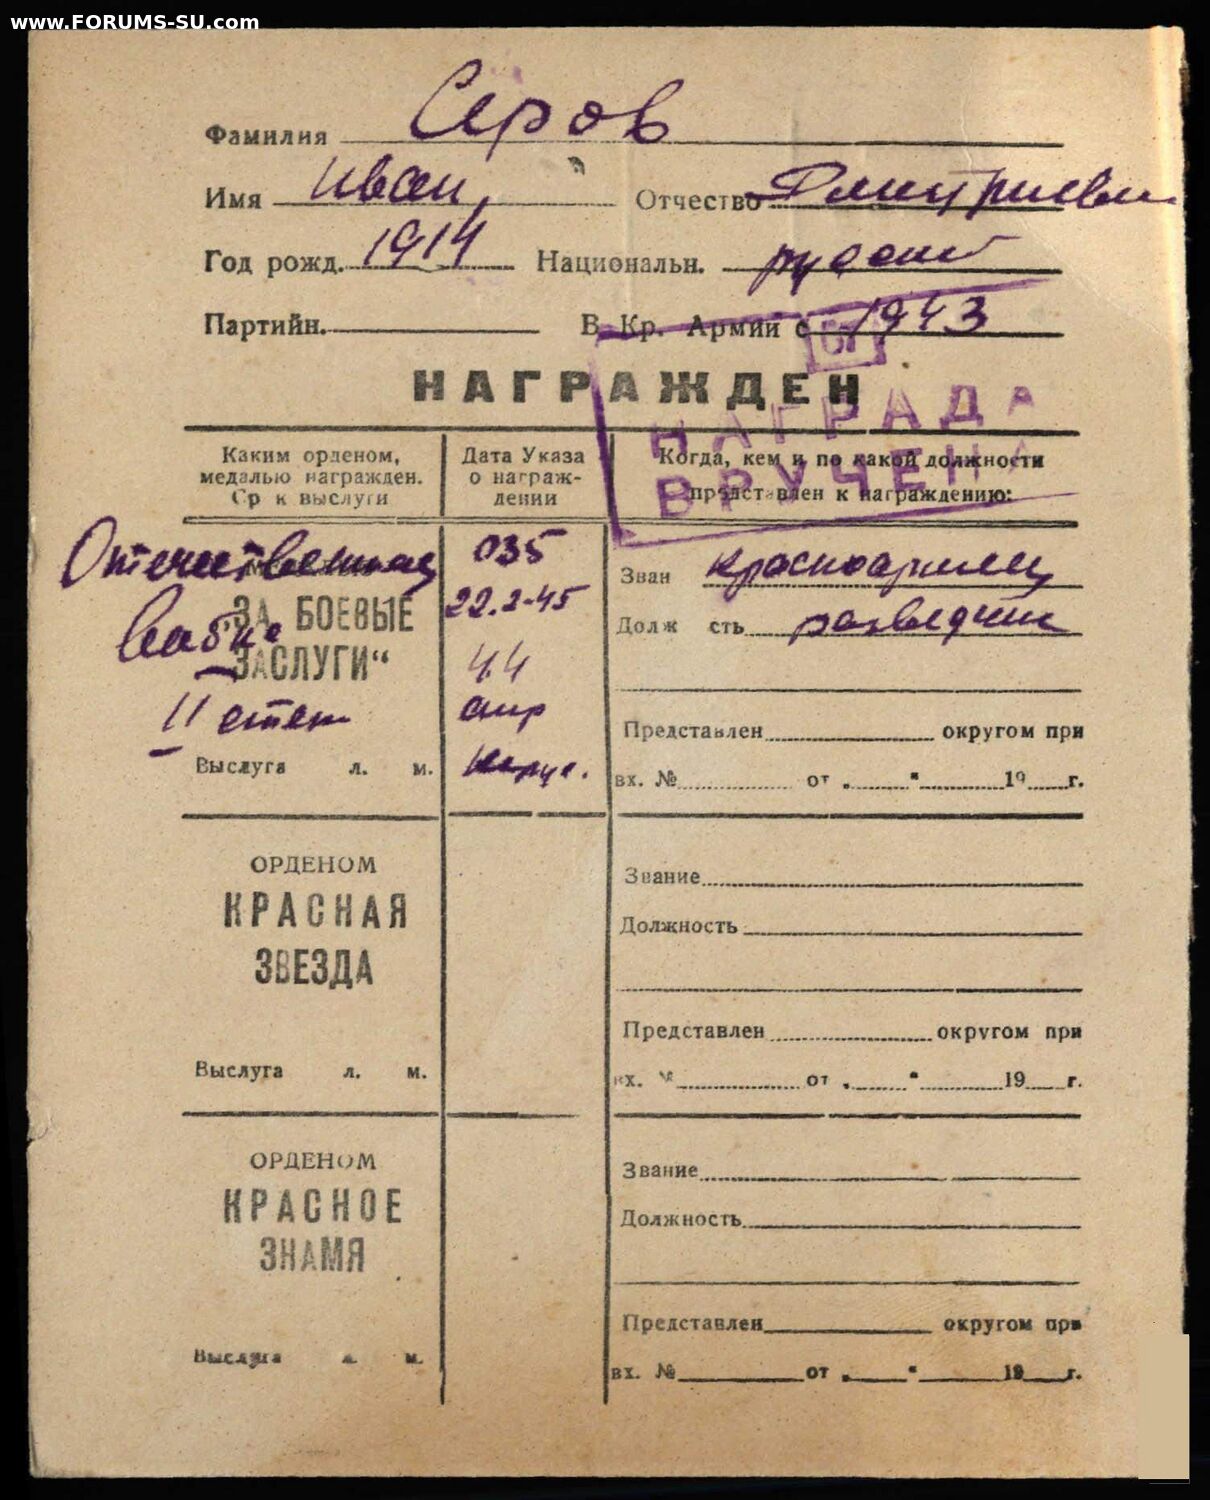 www.FORUMS-SU.com
Фамилия Серов
Имя Иван Отчество Дмитриевич
Год рожд. 1914 Национальн. русский
Партийн. В Кр. Армии с 1943
61
НАГРАЖДЕН
НАГРАДА
ВРУЧЕНА
Каким орденом, медалью награжден. Ср к выслуги
Дата Указа о награждении
Когда, кем и по какой должности представлен к награждению:
Отечественная
война
II степ
„ЗА БОЕВЫЕ
ЗАСЛУГИ“
Выслуга л. м.
035
22.2-45
44
арт
корпус.
Зван красноармеец
Долж сть разведчик
Представлен округом при
вх. № от „ “ 19 г.
ОРДЕНОМ
КРАСНАЯ
ЗВЕЗДА
Выслуга л. м.
Звание
Должность
Представлен округом при
вх. № от „ “ 19 г.
ОРДЕНОМ
КРАСНОЕ
ЗНАМЯ
Выслуга л. м.
Звание
Должность
Представлен округом при
вх. № от „ “ 19 г.